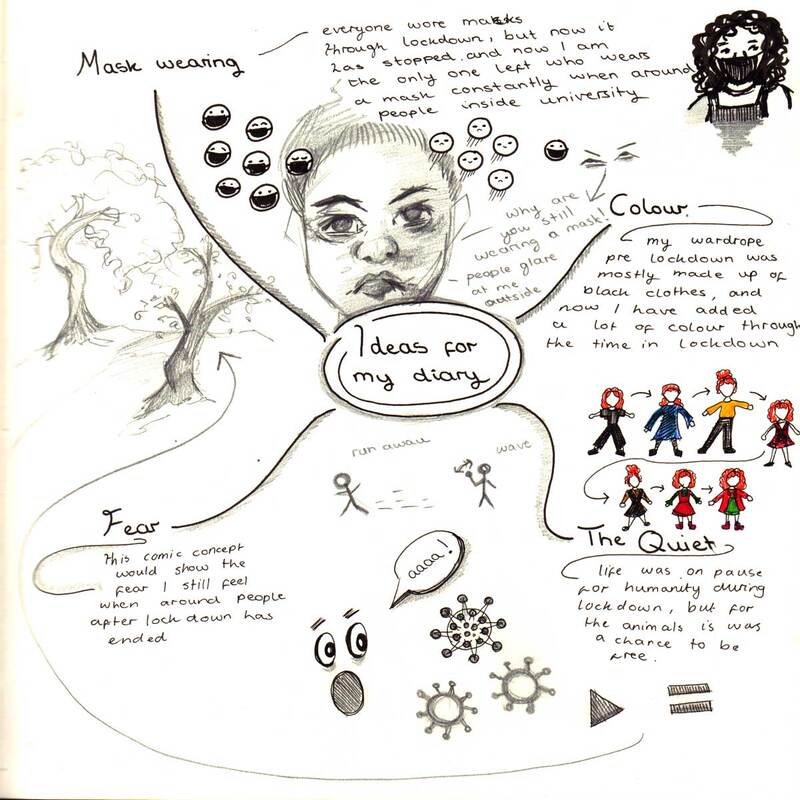 Mask wearing
everyone wore masks
through lockdown, but now it
has stopped and now I am
the only one left who wears
a mask constantly when around
people inside university
why are
you still
wearing a mask!
people glare
at me
outside
Colour
my wardrope
pre lockdown was
mostly made up of
black clothes, and
now I have added
a lot of colour through
the time in lockdown
Ideas for
my diary
run away
wave
Fear
this comic concept
would show the
fear I still feel
when around people
after lockdown has
ended
aaaa!
The Quiet
life was on pause
for humanity during
lockdown, but for
the animals is was
a chance to be
free.